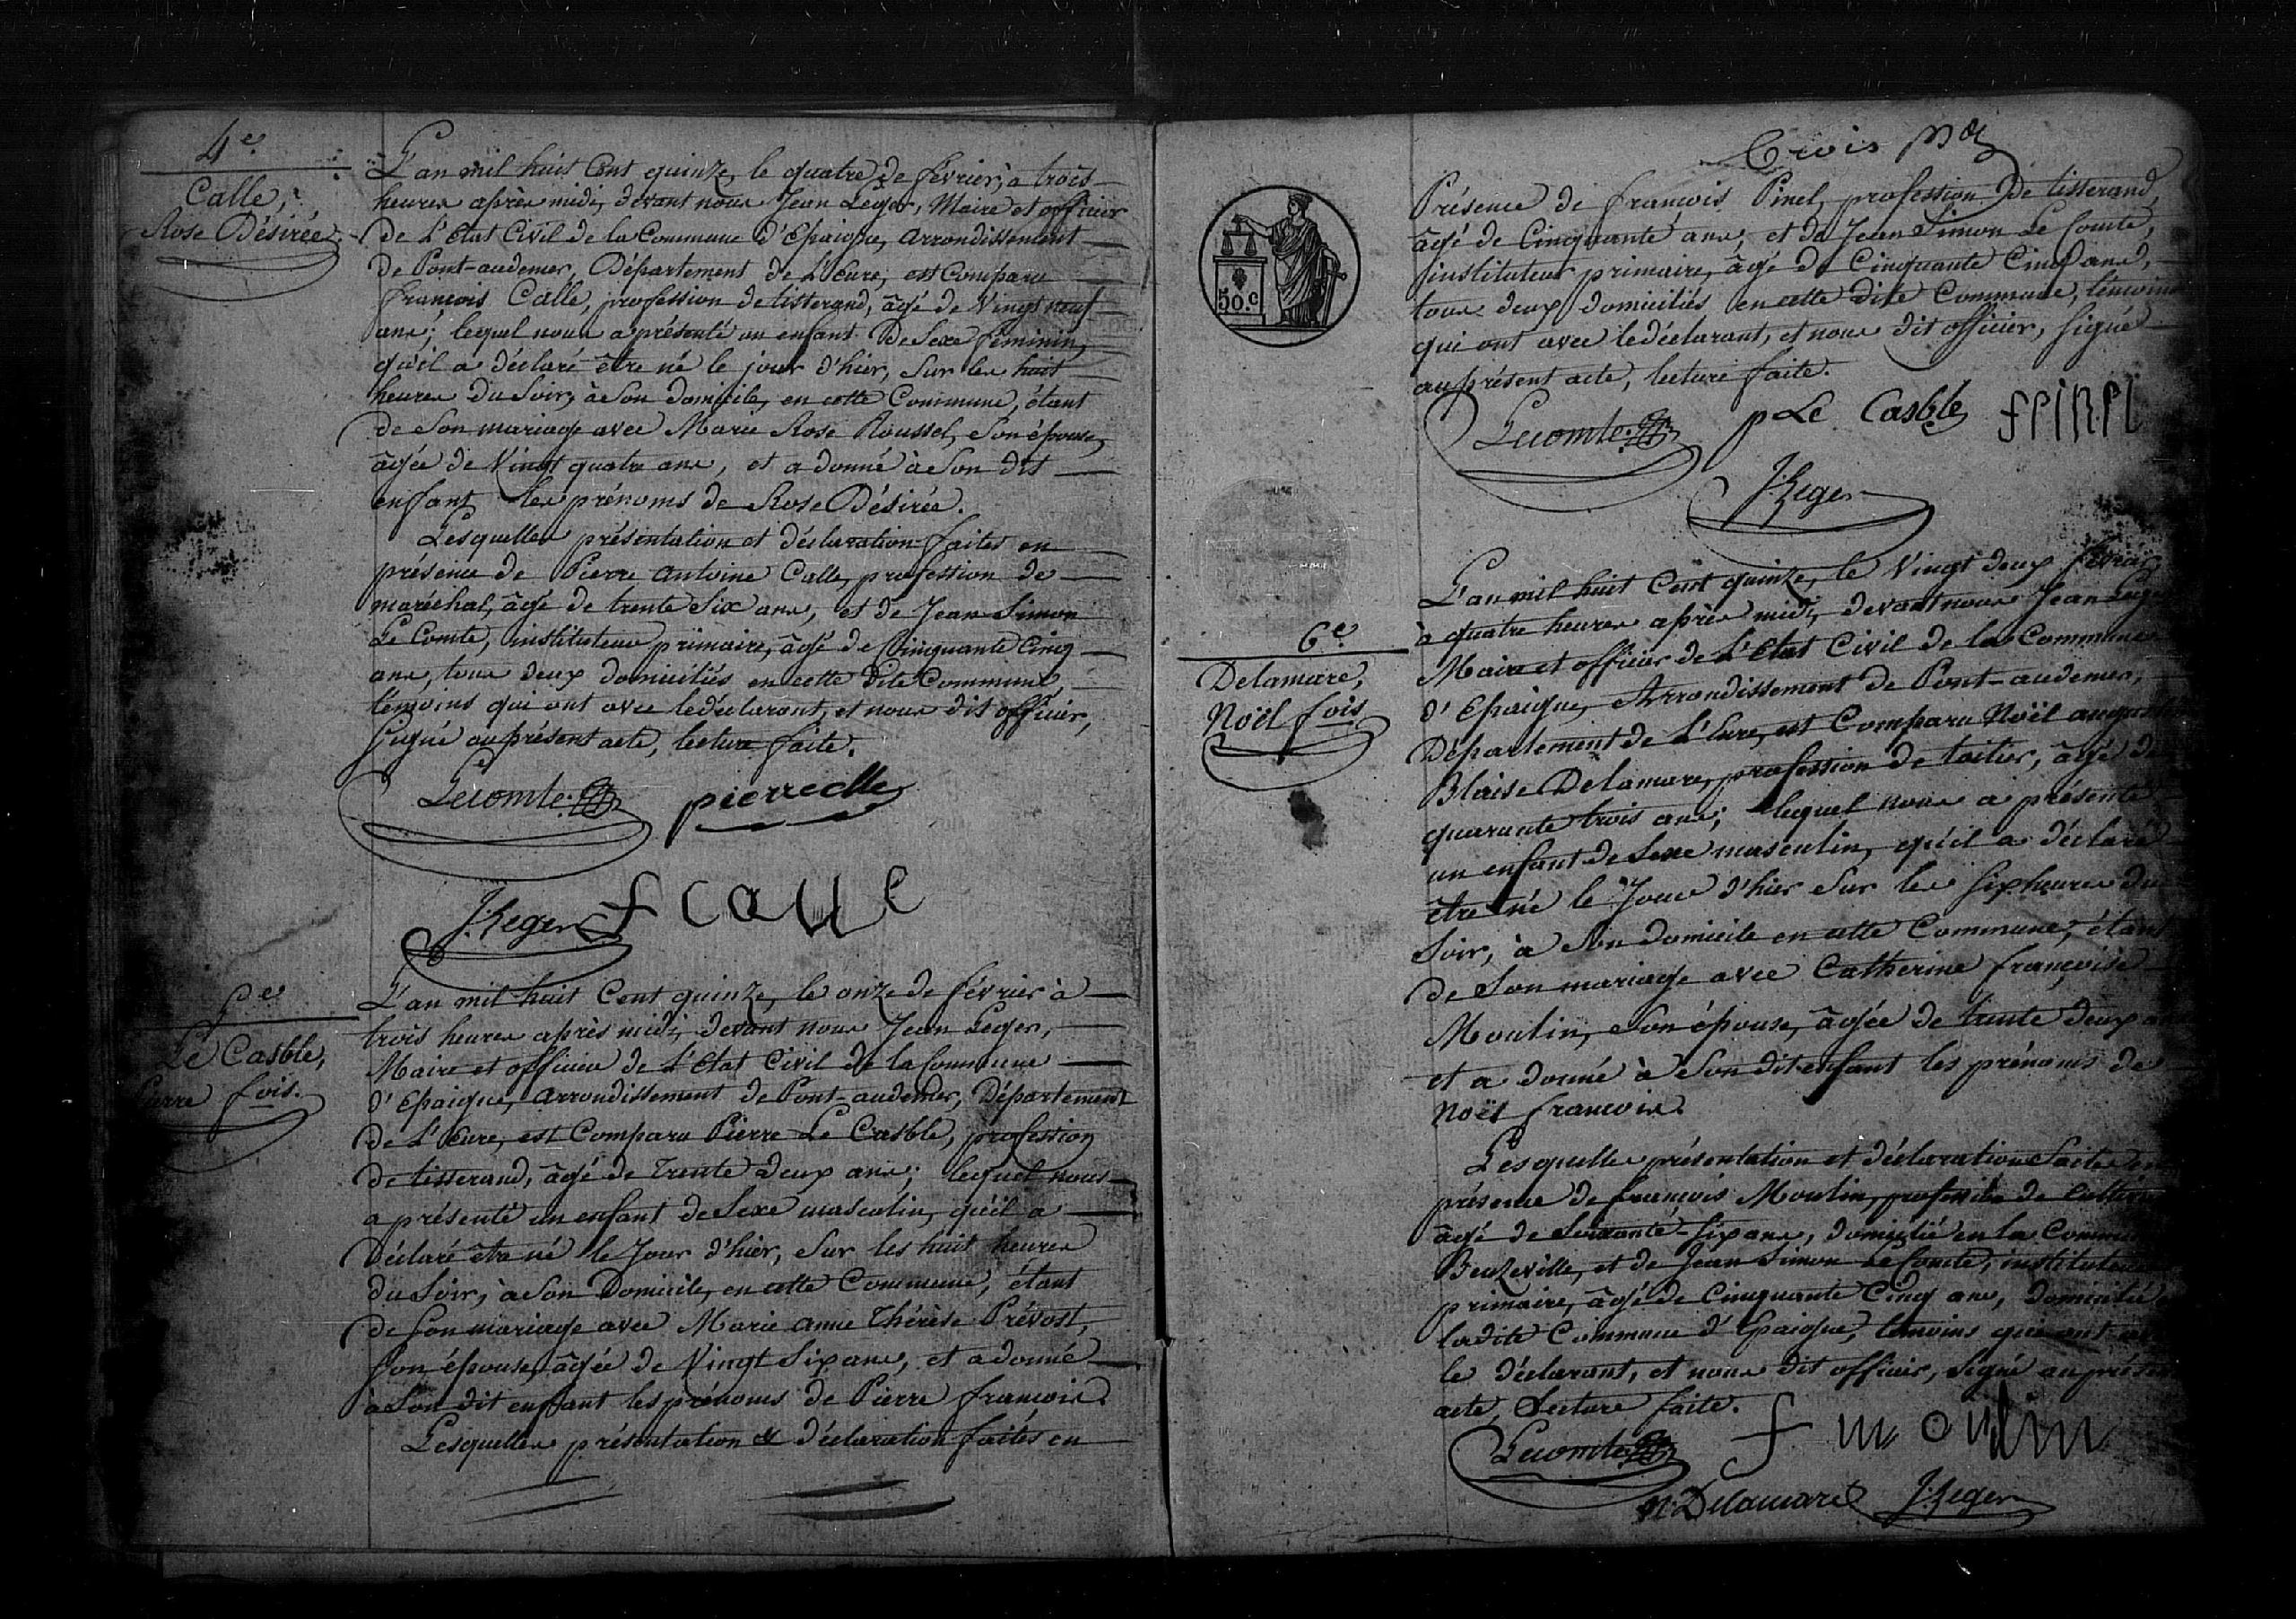 4e.
Calle,
Rose Désirée.
L'an mil huit Cent quinze, le quatre de février, à trois
heures après midi, devant nous Jean Leger, Maire et officier
de L'Etat Civil de la Commune d'Epaigne, arrondissement
de Pont-audemer, Département de L'Eure, est Comparu
françois Calle, profession de tisserand, âgé de Vingt neuf
ans; lequel nous a présenté un enfant De Sexe féminin,
qu'il a déclaré être né le jour d'hier, Sur les huit
heures du Soir, à Son domicile, en cette Commune, étant
de Son mariage avec Marie Rose Roussel, Son épouse,
âgée de Vingt quatre ans, et a donné à Son dit
enfant les prénoms de Rose Désirée.
Lesquelles présentation et déclaration faites en
présence de Pierre Antoine Calle, profession de
maréchal, âgé de trente Six ans, et de Jean Simon
Le Comte, instituteur primaire, âgé de Cinquante Cinq
ans, tous deux domiciliés en cette dite Commune
témoins qui ont avec le déclarant, et nous dit officier,
Signé au présent acte, lecture faite.
Lecomte pierre calle
J. Leger f calle
5e
Le Casble,
Pierre fois.
L'an mil huit Cent quinze, le onze de février à
trois heures après midi, devant nous Jean Leger,
Maire et officier de L'Etat Civil de la Commune
d'Epaigne, arrondissement de Pont-audemer, Département
de L'Eure, est Comparu Pierre Le Casble, profession
de tisserand, âgé de Trente deux ans; lequel nous
a présenté un enfant de Sexe masculin, qu'il a
Déclaré être né le Jour d'hier, Sur les huit heures
du Soir, à Son Domicile, en cette Commune, étant
de Son mariage avec Marie anne Thérèse Prévost,
Son épouse, âgée de Vingt Six ans, et a donné
à Son dit enfant les prénoms de Pierre françois.
Lesquelles présentation et déclaration faites en
Trois
50.c
Présence de françois Pinel, profession de tisserand,
âgé de Cinquante ans, et de Jean Simon Le Comte,
instituteur primaire, âgé de Cinquante Cinq ans,
tous deux domiciliés en cette dite Commune, témoins
qui ont avec le déclarant, et nous dit officier, Signé
au présent acte, lecture faite.
Lecomte p Le Casble f PINEL
J. Leger
6e.
Delamare,
Noël fois
L'an mil huit Cent quinze, le Vingt deux février,
à quatre heures après midi, devant nous Jean Leger
Maire et officier de L'Etat Civil de la Commune
d'Epaigne, Arrondissement de Pont-audemer,
Département de L'Eure, est Comparu Noël auguste
Blaise Delamare, profession de toilier, âgé de
quarante trois ans; lequel nous a présenté
un enfant de Sexe masculin, qu'il a déclaré
être né le Jour d'hier Sur les Six heures du
Soir, à Son domicile en cette Commune, étant
de Son mariage avec Catherine françoise
Moulin, Son épouse, âgée de trente deux
et a donné à Son dit enfant les prénoms de
Noël françois.
Lesquelles présentation et déclaration faites en
présence de françois Moulin, profession de
âgé de Soixante-Six ans, domicilié en la
Beuzeville, et de Jean Simon Le Comte, instituteur
primaire, âgé de Cinquante Cinq ans, domicilié
ladite Commune d'Epaigne, témoins qui ont
le déclarant, et nous dit officier, Signé au
acte, Lecture faite.
Lecomte f moulin
N. Delamare J. Leger